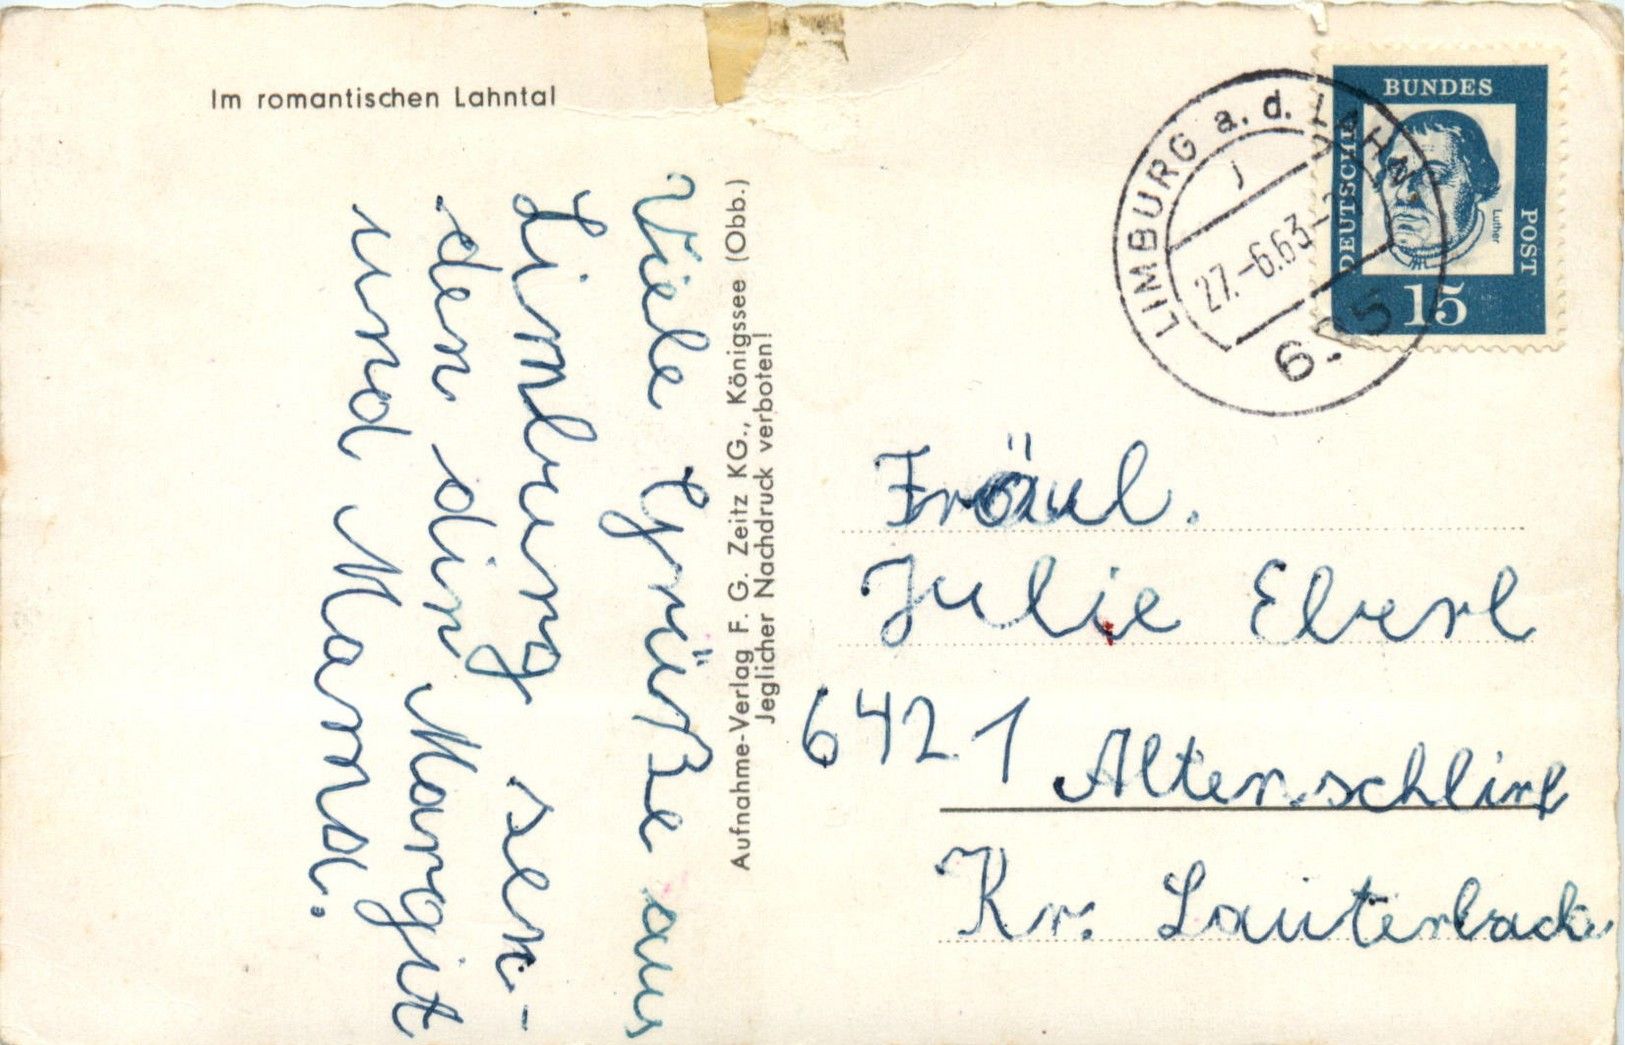 Im romantischen Lahntal
Viele Grüße aus
Limburg sen-
den dir Margit
und Mama.
Aufnahme-Verlag F. G. Zeitz KG., Königssee (Obb.)
Jeglicher Nachdruck verboten!
LIMBURG a. d. LAHN
J
27.-6.63
BUNDES
DEUTSCHE
POST
Luther
15
Fräul.
Julie Eberl
6421 Altenschlirf
Kr. Lauterbach